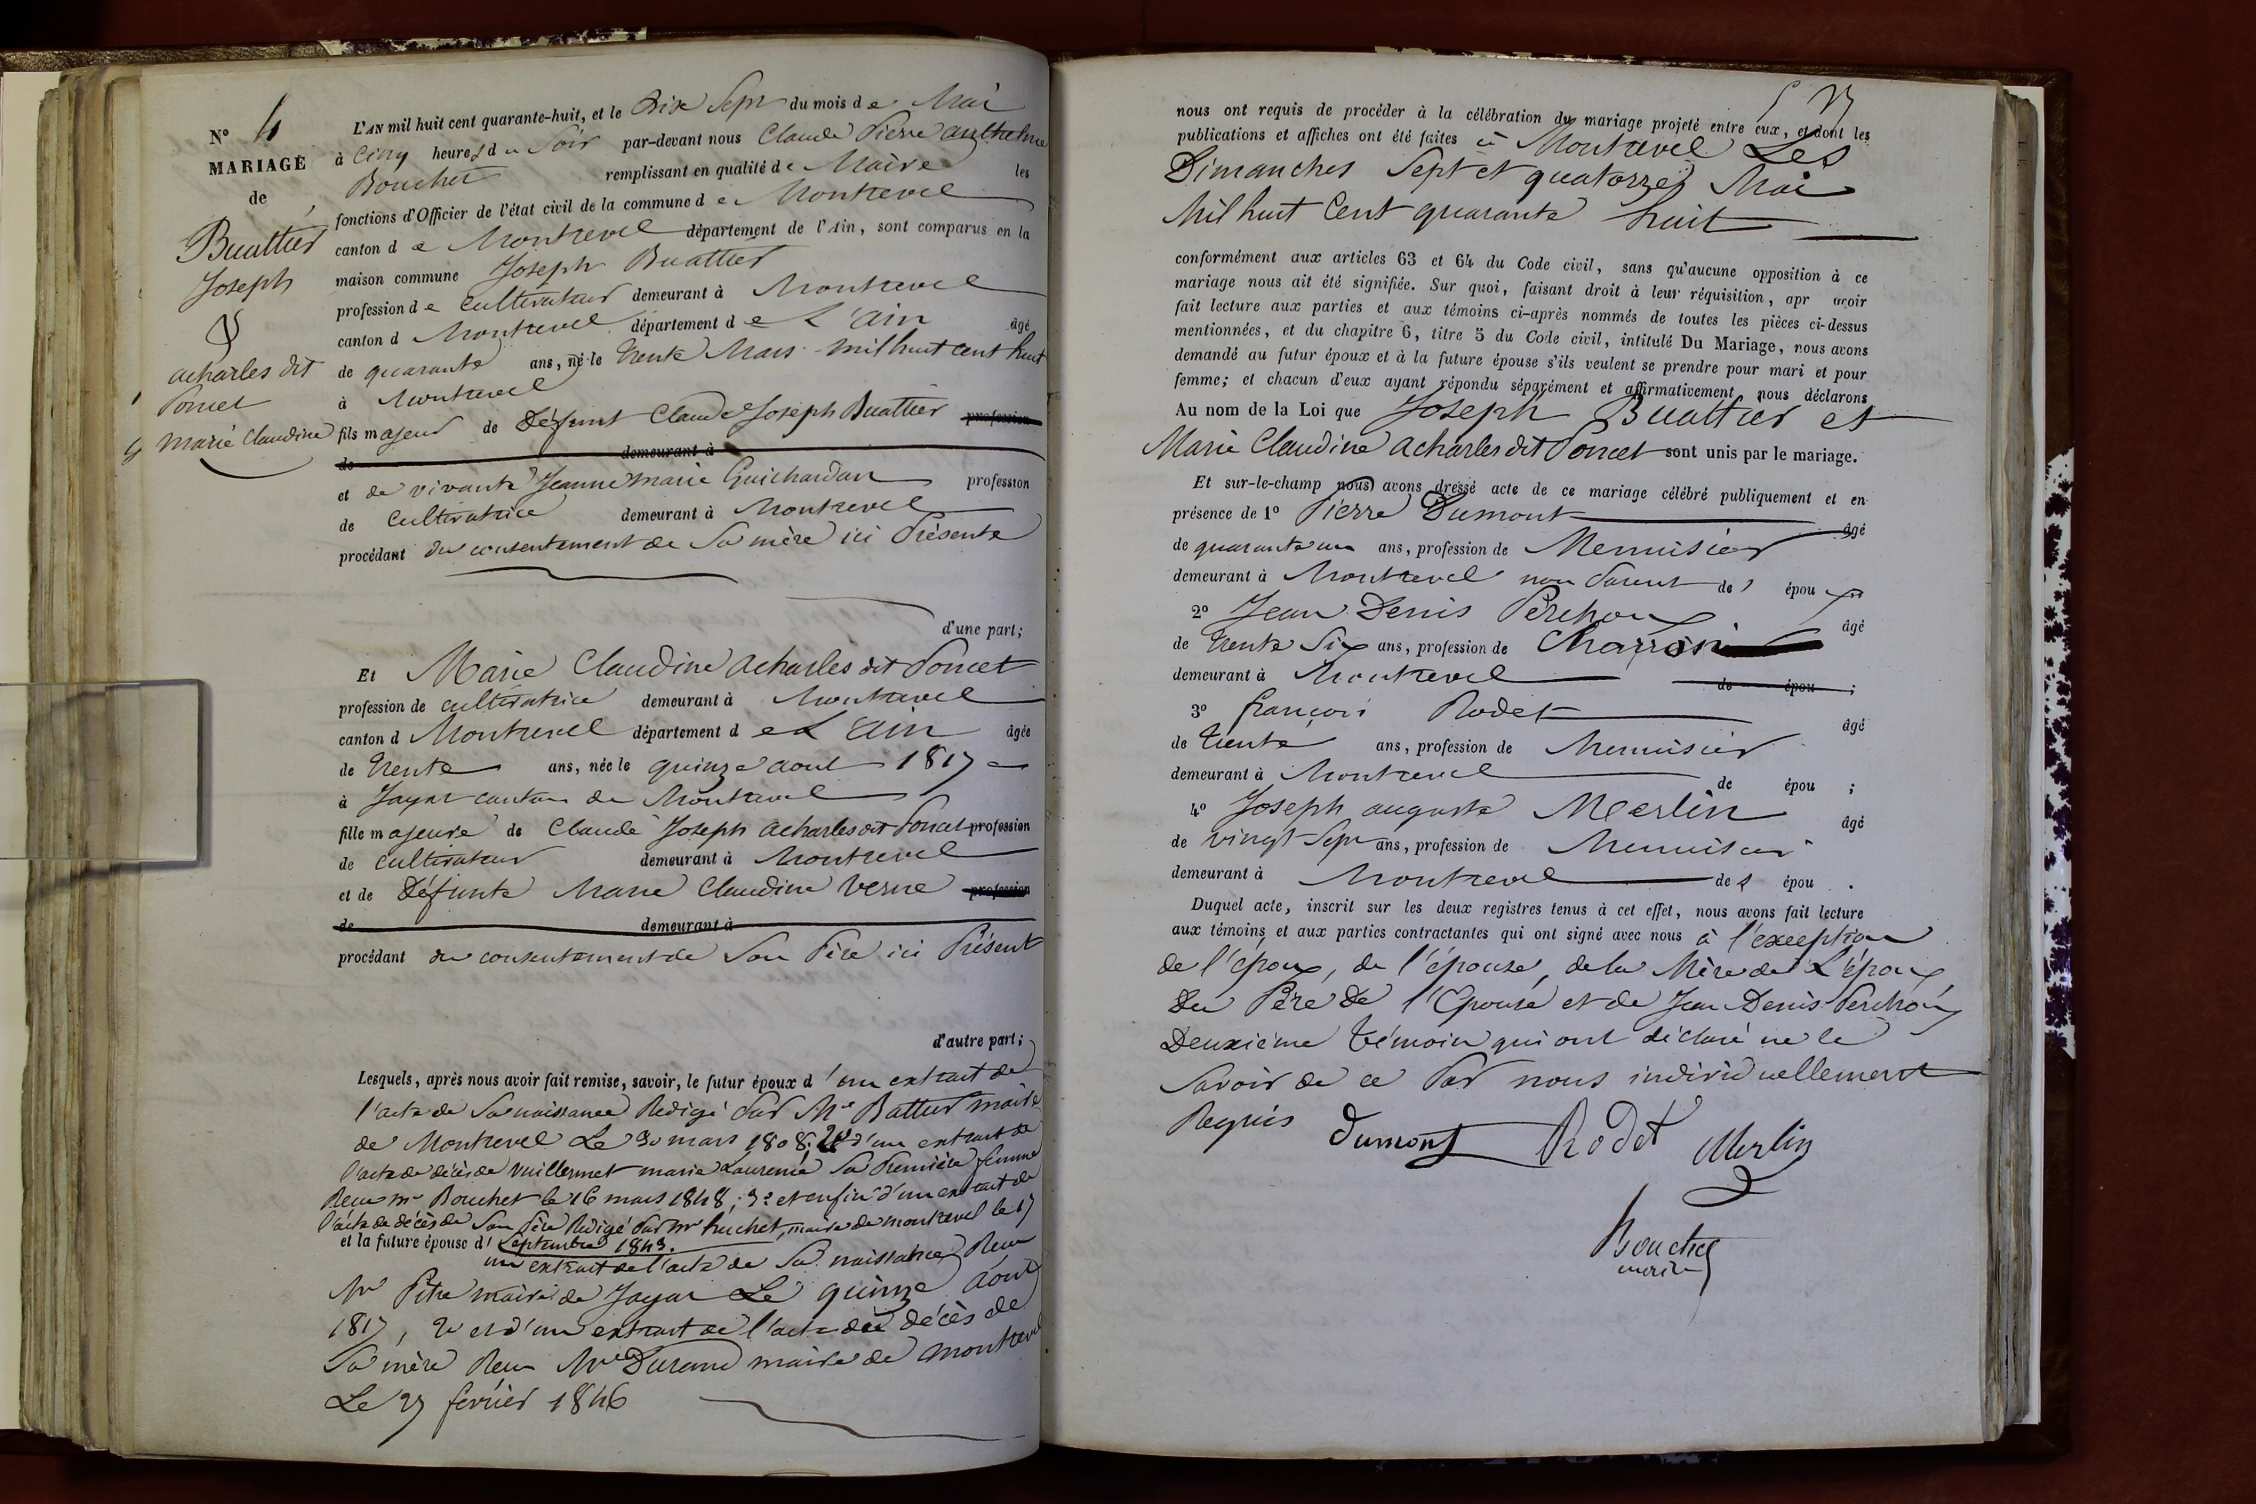 N° 4
MARIAGE
de
Buattier
Joseph
&
acharles dit
Poncet
Marie Claudine
L'AN mil huit cent quarante-huit, et le Dix Sept du mois de Mai
à Cinq heures du Soir par-devant nous Claude Pierre anthelme
Bouchet remplissant en qualité de Maire les
fonctions d'Officier de l'état civil de la commune de Montrevel
canton de Montrevel département de l'Ain, sont comparus en la
maison commune Joseph Buattier
profession de Cultivateur demeurant à Montrevel
canton d Montrevel département de L'ain âgé
de quarante ans, né le trente Mars mil huit cent huit
à Montrevel
fils majeur de Défunt Claude Joseph Buattier profession
de demeurant à
et de vivante Jeanne marie Guichardan profession
de Cultivatrice demeurant à Montrevel
procédant du consentement de Sa mère ici Présente
d'une part;
Et Marie Claudine acharles dit Poncet
profession de cultivatrice demeurant à Montrevel
canton d Montrevel département de L'ain âgée
de trente ans, née le quinze aout 1817
à Jayat canton de Montrevel
fille majeure de Claude Joseph acharles dit Poncet profession
de cultivateur demeurant à Montrevel
et de Défunte Marie Claudine Verne profession
de demeurant à
procédant du consentement de Son Père ici Présent
d'autre part;
Lesquels, après nous avoir fait remise, savoir, le futur époux d'un extrait de
l'acte de Sa naissance Redigé Par Mr Battur maire
de Montrevel Le 30 mars 1808; 2° d'un extrait de
l'acte de décès de Vuillermet marie Laurence Sa Première femme
Reçu Mr Bouchet le 16 mars 1848; 3° et enfin d'un extrait de
l'acte de décès de Son Père Redigé Par Mr huchet, maire de montrevel le 17
Septembre 1843.
et la future épouse d'un extrait de l'acte de Sa naissance Reçu
Mr Pitre maire de Jayat Le quinze Aout
1817, 2° et d'un extrait de l'acte de décès de
Sa mère Reçu Mr Durand maire de montrevel
Le 27 février 1846
nous ont requis de procéder à la célébration du mariage projeté entre eux, et dont les
publications et affiches ont été faites à Montrevel Les
Dimanches Sept et quatorze Mai
Mil huit Cent quarante huit
conformément aux articles 63 et 64 du Code civil, sans qu'aucune opposition à ce
mariage nous ait été signifiée. Sur quoi, faisant droit à leur réquisition, apr avoir
fait lecture aux parties et aux témoins ci-après nommés de toutes les pièces ci-dessus
mentionnées, et du chapitre 6, titre 5 du Code civil, intitulé Du Mariage, nous avons
demandé au futur époux et à la future épouse s'ils veulent se prendre pour mari et pour
femme; et chacun d'eux ayant répondu séparément et affirmativement nous déclarons
Au nom de la Loi que Joseph Buattier et
Marie Claudine Acharles dit Poncet sont unis par le mariage.
Et sur-le-champ nous avons dressé acte de ce mariage célébré publiquement et en
présence de 1° Pierre Dumont âgé
de quarante un ans, profession de Menuisier
demeurant à Montrevel non Parent de l'époux
2° Jean Denis Perchoux âgé
de trente Six ans, profession de Charron
demeurant à Montrevel de épou ;
3° françois Rodet âgé
de trente ans, profession de Menuisier
demeurant à Montrevel de épou ;
4° Joseph auguste Merlin âgé
de vingt Sept ans, profession de Menuisier
demeurant à Montrevel de épou .
Duquel acte, inscrit sur les deux registres tenus à cet effet, nous avons fait lecture
aux témoins et aux parties contractantes qui ont signé avec nous à l'exception
de l'époux, de l'épouse, de la Mère de L'époux
Du Père De l'Epouse et de Jean Denis Perchoux
Deuxième témoin qui ont déclaré ne le
Savoir de ce Par nous individuellement
Requis
Dumont Rodet Merlin
Bouchet
maire